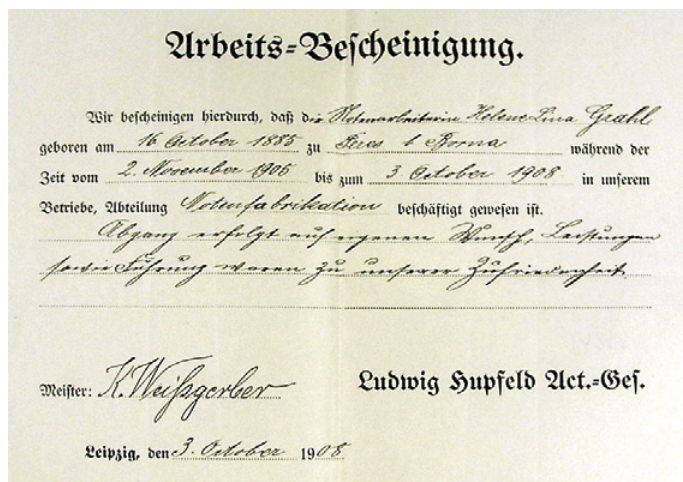 Arbeits-Bescheinigung.
Wir bescheinigen hierdurch, daß die Notenarbeiterin Helene Lina Grahl
geboren am 16 October 1885 zu b Borna während der
Zeit vom 2. November 1906 bis zum 3. October 1908 in unserem
Betriebe, Abteilung Notenfabrikation beschäftigt gewesen ist.
Abgang erfolgt auf eigenen Wunsch, Leistungen
sowie Führung waren zu unserer Zufriedenheit.
Meister: K. Weißgerber
Ludwig Hupfeld Act.-Ges.
Leipzig, den 3. October 1908